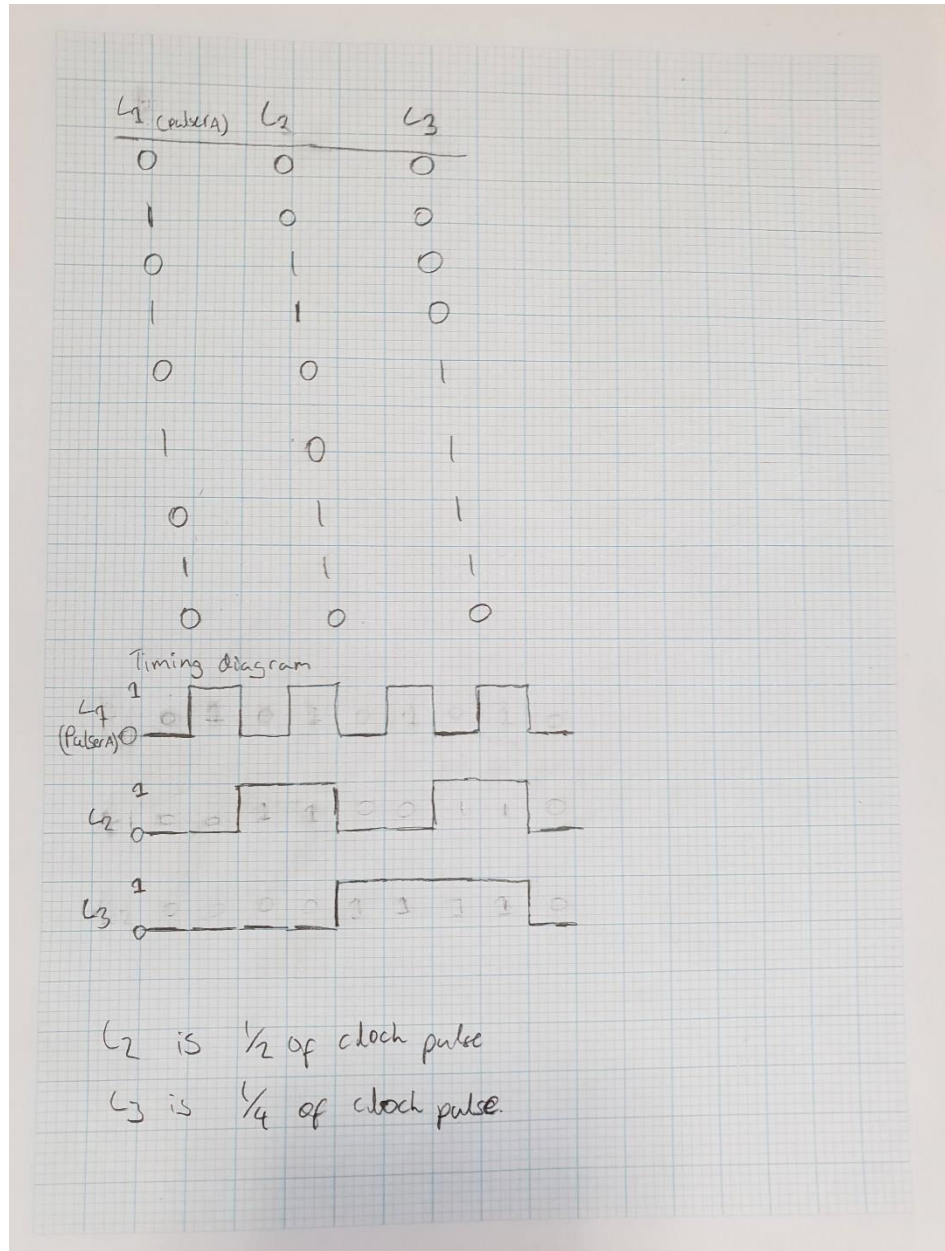 L1 (pulser A) L2 L3
0 0 0
1 0 0
0 1 0
1 1 0
0 0 1
1 0 1
0 1 1
1 1 1
0 0 0
Timing diagram
1
L1 0 1 0 1 0 1 0 1 0
(Pulser A) 0
1
L2 0 0 1 1 0 0 1 1 0
0
1
L3 0 0 0 0 1 1 1 1 0
0
L2 is 1/2 of cloch pulse
L3 is 1/4 of cloch pulse.